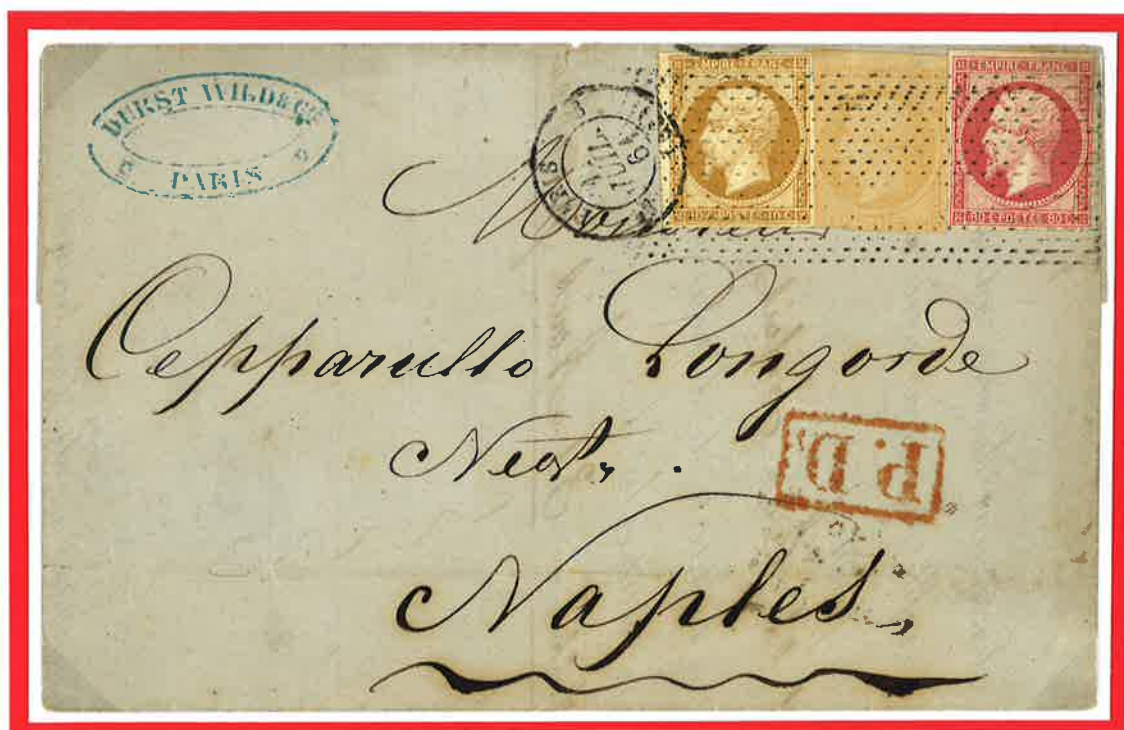 DURST WILD & Cie
PARIS
EMPIRE FRANC
10 C POSTES 10 C
EMPIRE FRANC
80 C POSTES 80 C
19
Monsieur
Cepparullo Longorde
Negt,
P.D.
Naples,